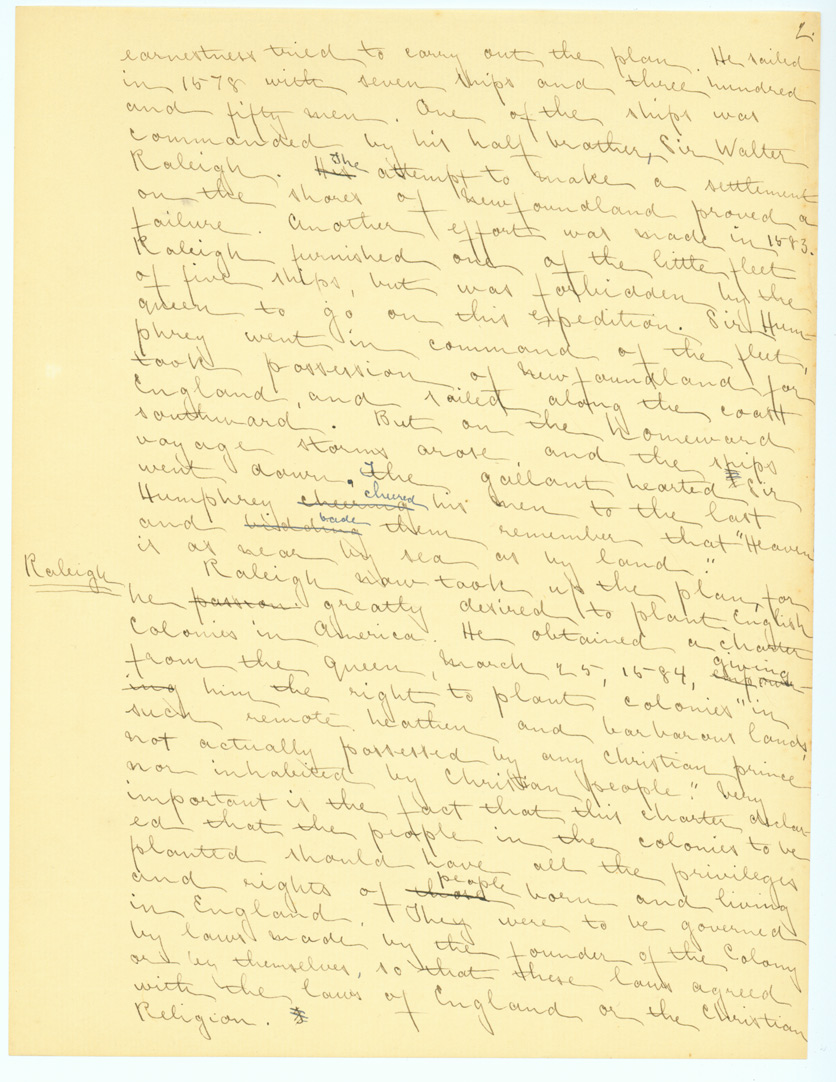 2.
earnestness tried to carry out the plan. He sailed
in 1578 with seven ships and three hundred
and fifty men. One of the ships was
commanded by his half brother, Sir Walter
Raleigh. His The attempt to make a settlement
on the shores of Newfoundland proved a
failure. Another effort was made in 1583.
Raleigh furnished one of the little fleet
of five ships, but was forbidden by the
queen to go on this expedition. Sir Hum-
phrey went in command of the fleet,
took possession of Newfoundland for
England, and sailed along the coast
southward. But on the homeward
voyage storms arose and the ships
went down. The gallant hearted Sir
Humphrey cheering cheered his men to the last
and bidding bade them remember that "Heaven
is as near by sea as by land."
Raleigh
Raleigh now took up the plan, for
he passion greatly desired to plant English
Colonies in America. He obtained a charter
from the queen, March 25, 1584, giving
him the right to plant colonies "in
such remote heathen and barbarous lands,
not actually possessed by any christian prince
nor inhabited by Christian people." Very
important is the fact that this charter declar-
ed that the people in the colonies to be
planted should have all the privileges
and rights of those people born and living
in England. They were to be governed
by laws made by the founder of the Colony
or by themselves, so that these laws agreed
with the laws of England or the Christian
Religion.